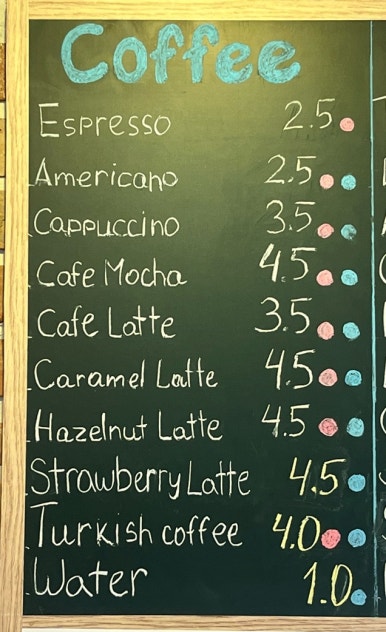 Coffee
Espresso 2.5
Americano 2.5
Cappuccino 3.5
Cafe Mocha 4.5
Cafe Latte 3.5
Caramel Latte 4.5
Hazelnut Latte 4.5
Strawberry Latte 4.5
Turkish coffee 4.0
Water 1.0